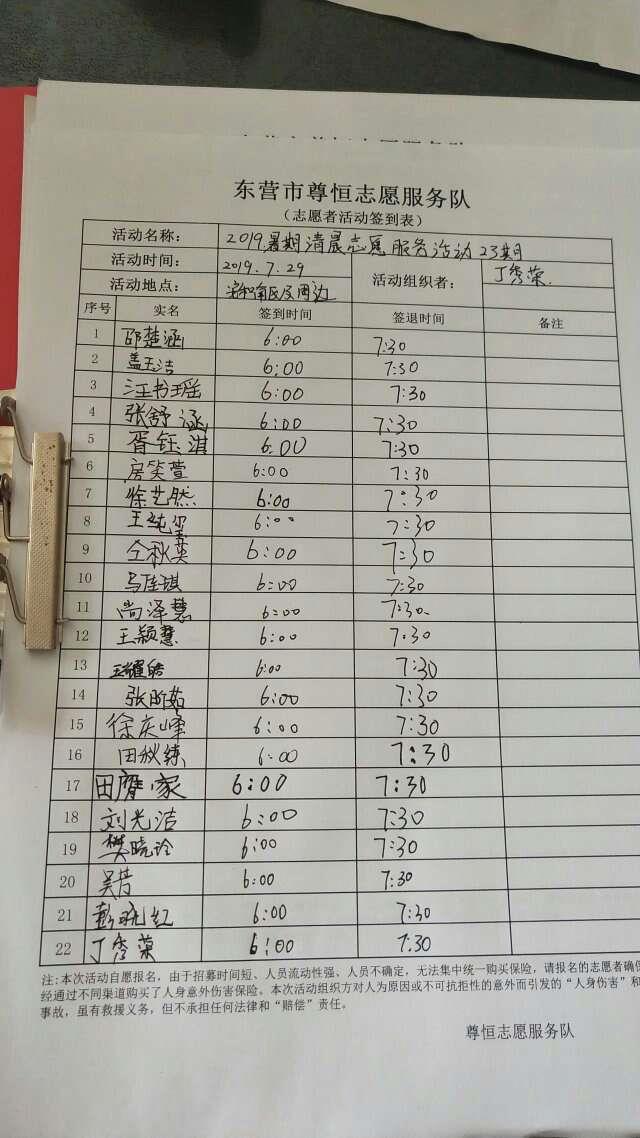 东营市尊恒志愿服务队
(志愿者活动签到表)
活动名称: 2019暑期清晨志愿服务活动23期
活动时间: 2019.7.29 活动组织者: 丁秀荣
活动地点: 区及周边
序号 实名 签到时间 签退时间 备注
1 邵楚涵 6:00 7:30
2 盖玉洁 6:00 7:30
3 汪书瑶 6:00 7:30
4 张舒涵 6:00 7:30
5 胥钰淇 6:00 7:30
6 房笑萱 6:00 7:30
7 徐艺然 6:00 7:30
8 王纯 6:00 7:30
9 仝秋英 6:00 7:30
10 马佳琪 6:00 7:30
11 尚泽慧 6:00 7:30
12 王颖慧 6:00 7:30
13 6:00 7:30
14 张昕茹 6:00 7:30
15 徐庆峰 6:00 7:30
16 田秋练 6:00 7:30
17 田家 6:00 7:30
18 刘光洁 6:00 7:30
19 樊晓玲 6:00 7:30
20 吴昔 6:00 7:30
21 彭晓红 6:00 7:30
22 丁秀荣 6:00 7:30
注:本次活动自愿报名,由于招募时间短、人员流动性强、人员不确定,无法集中统一购买保险,请报名的志愿者确保
经通过不同渠道购买了人身意外伤害保险。本次活动组织方对人为原因或不可抗拒性的意外而引发的“人身伤害”和
事故,虽有救援义务,但不承担任何法律和“赔偿”责任。
尊恒志愿服务队